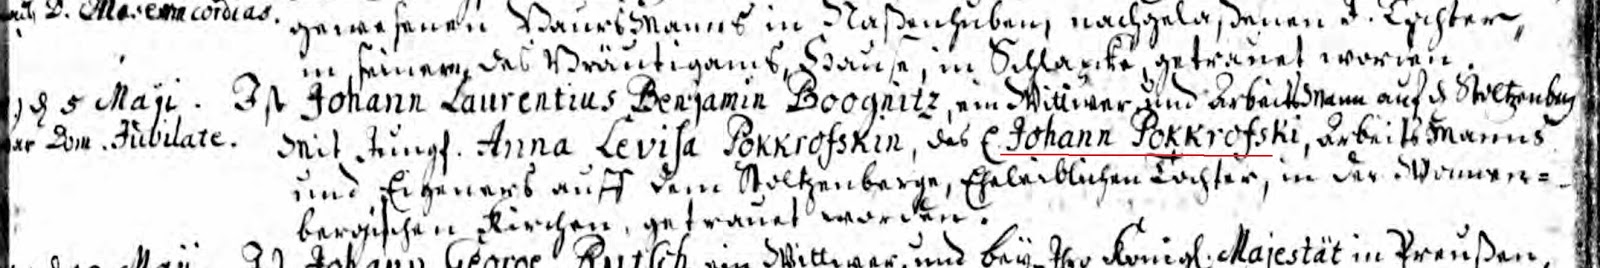 auf D. Misericordias. gewesenen Baursmanns in Naßenhuben, nachgelaßenen J. Tochter,
in seinem, des Bräutigams, Hause, in Schlapke, getrauet worden.
d 5 Maji. Ist Johann Laurentius Benjamin Boognitz, ein Wittwer und Arbeitsmann auf d Stoltzenberg
Dom. Jubilate. Mit Jungf. Anna Levisa Pokkrofskin, des Johann Pokkrofski, Arbeits Manns
und Eigeners auff dem Stoltzenberge, Eheleiblichen Tochter, in der Wonnen=
bergischen Kirchen, getrauet worden.
Maji Ist Johann George Rutsch ein Wittwer, und bey Ihro Königl. Majestät in Preußen,